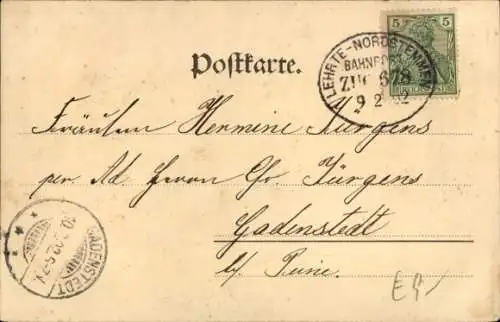 5 5
LEHRTE-NORDSTEMMEN
BAHNPOST
ZUG 678
9 2 02
Postkarte.
Fräulein Hermine Jürgens
per. Ad. Herrn Gr. Jürgens
Gadenstedt
b/. Peine.
GADENSTEDT